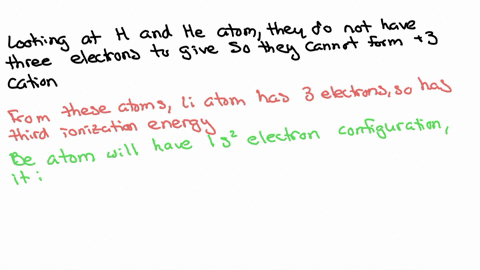 Looking at H and He atom, they do not have
three electrons to give so they cannot form +3
cation
From these atoms, Li atom has 3 electrons, so has
third ionization energy
Be atom will have 1s² electron configuration,
it i